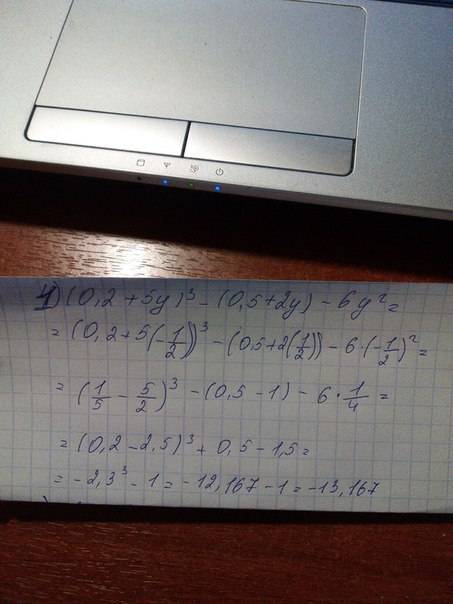 4) (0,2 + 5y)³ - (0,5 + 2y) - 6y² =
= (0,2 + 5(-1/2))³ - (0,5 + 2(1/2)) - 6·(-1/2)² =
= (1/5 - 5/2)³ - (0,5 - 1) - 6·1/4 =
= (0,2 - 2,5)³ + 0,5 - 1,5 =
= -2,3³ - 1 = -12,167 - 1 = -13,167